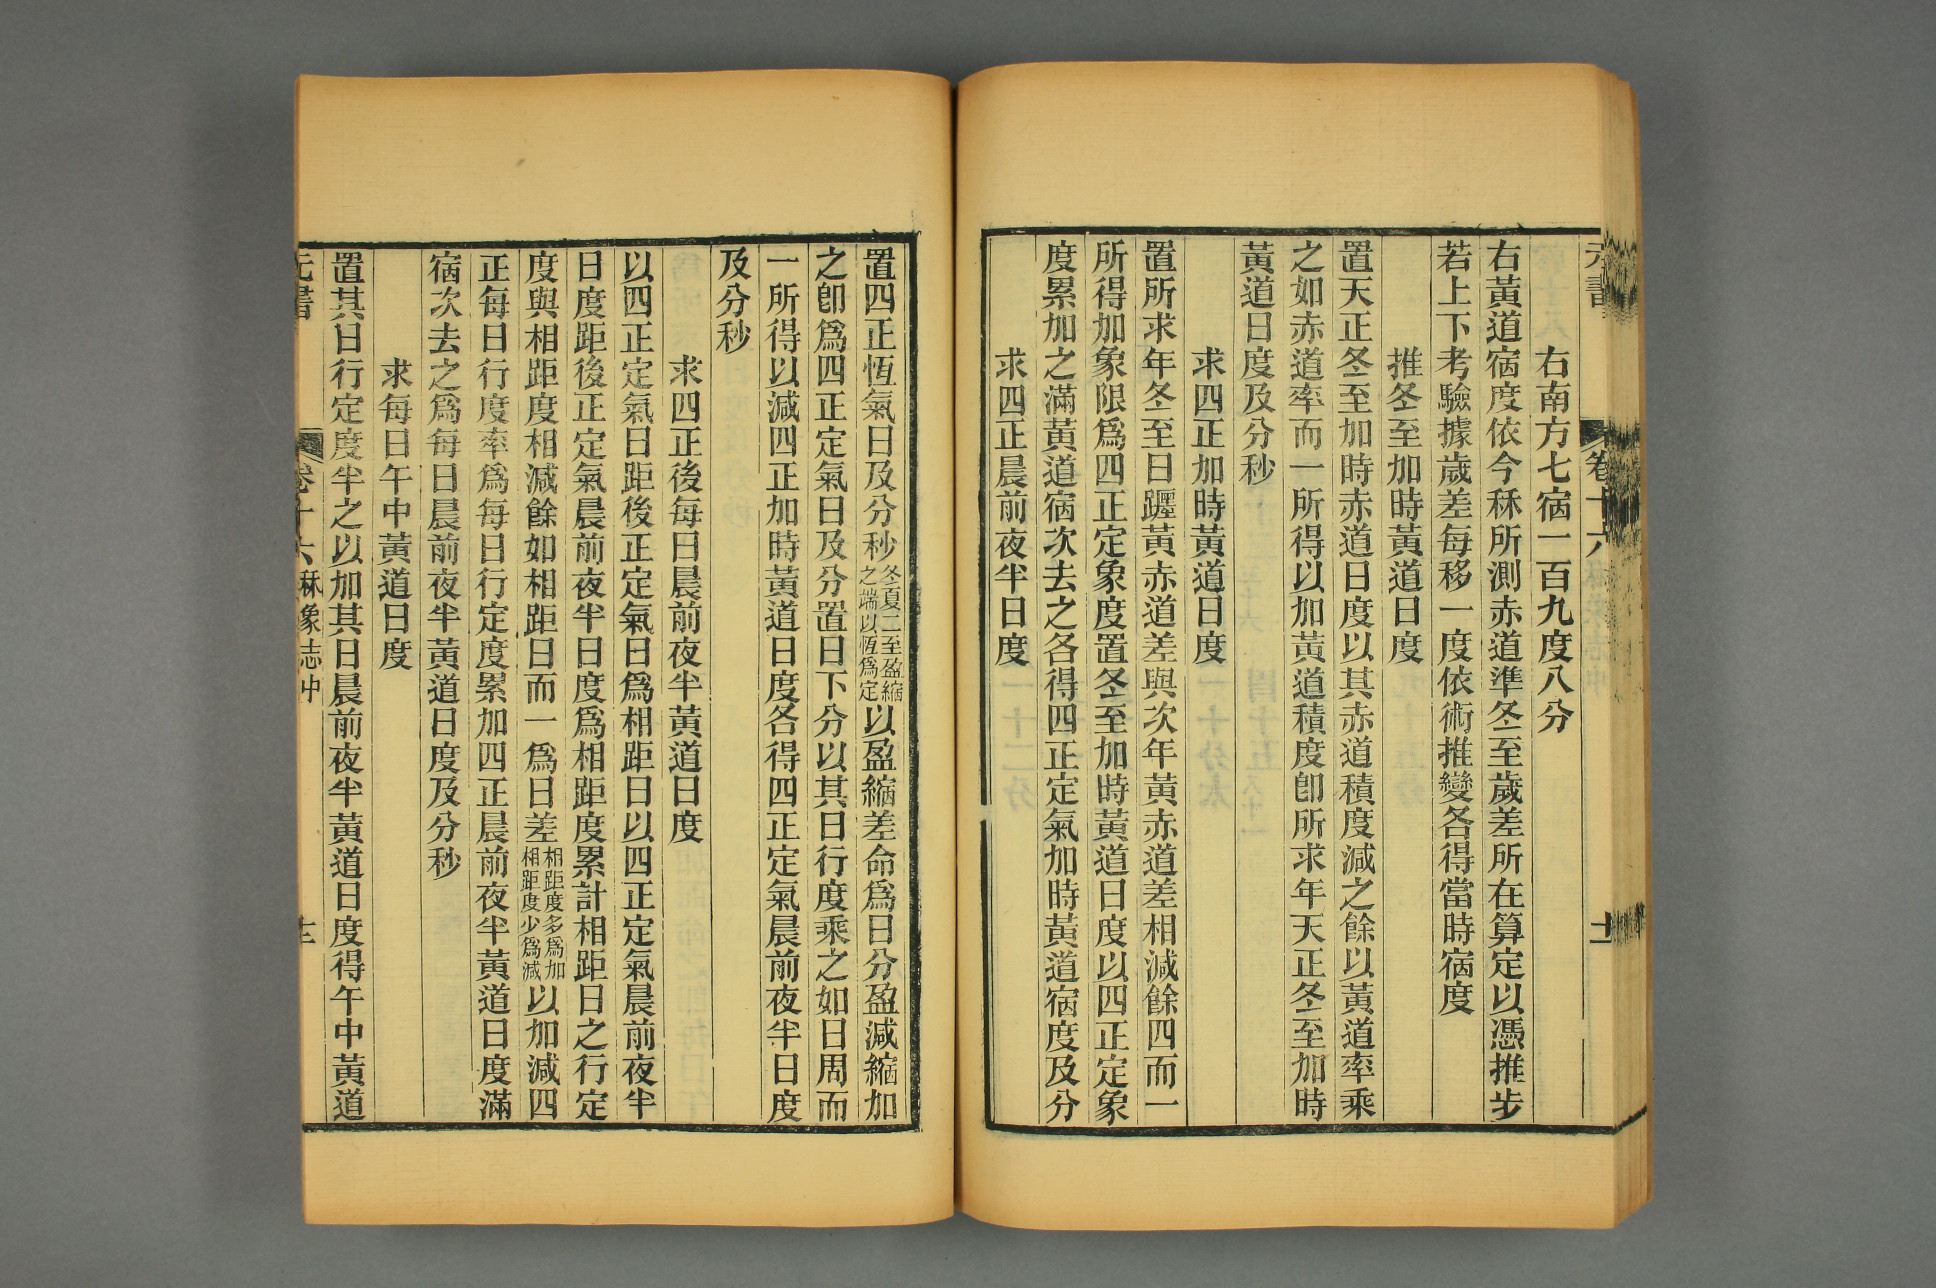 元書
卷十六
十一
右南方七宿一百九度八分
右黃道宿度依今秝所測赤道準冬至歲差所在算定以憑推步
若上下考驗據歲差每移一度依術推變各得當時宿度
推冬至加時黃道日度
置天正冬至加時赤道日度以其赤道積度減之餘以黃道率乘
之如赤道率而一所得以加黃道積度卽所求年天正冬至加時
黃道日度及分秒
求四正加時黃道日度
置所求年冬至日躔黃赤道差與次年黃赤道差相減餘四而一
所得加象限爲四正定象度置冬至加時黃道日度以四正定象
度累加之滿黃道宿次去之各得四正定氣加時黃道宿度及分
求四正晨前夜半日度
置四正恆氣日及分秒冬夏二至盈縮之端以恆爲定以盈縮差命爲日分盈減縮加
之卽爲四正定氣日及分置日下分以其日行度乘之如日周而
一所得以減四正加時黃道日度各得四正定氣晨前夜半日度
及分秒
求四正後每日晨前夜半黃道日度
以四正定氣日距後正定氣日爲相距日以四正定氣晨前夜半
日度距後正定氣晨前夜半日度爲相距度累計相距日之行定
度與相距度相減餘如相距日而一爲日差相距度多爲加相距度少爲減以加減四
正每日行度率爲每日行定度累加四正晨前夜半黃道日度滿
宿次去之爲每日晨前夜半黃道日度及分秒
求每日午中黃道日度
置其日行定度半之以加其日晨前夜半黃道日度得午中黃道
元書
卷十六秝象志中
十二